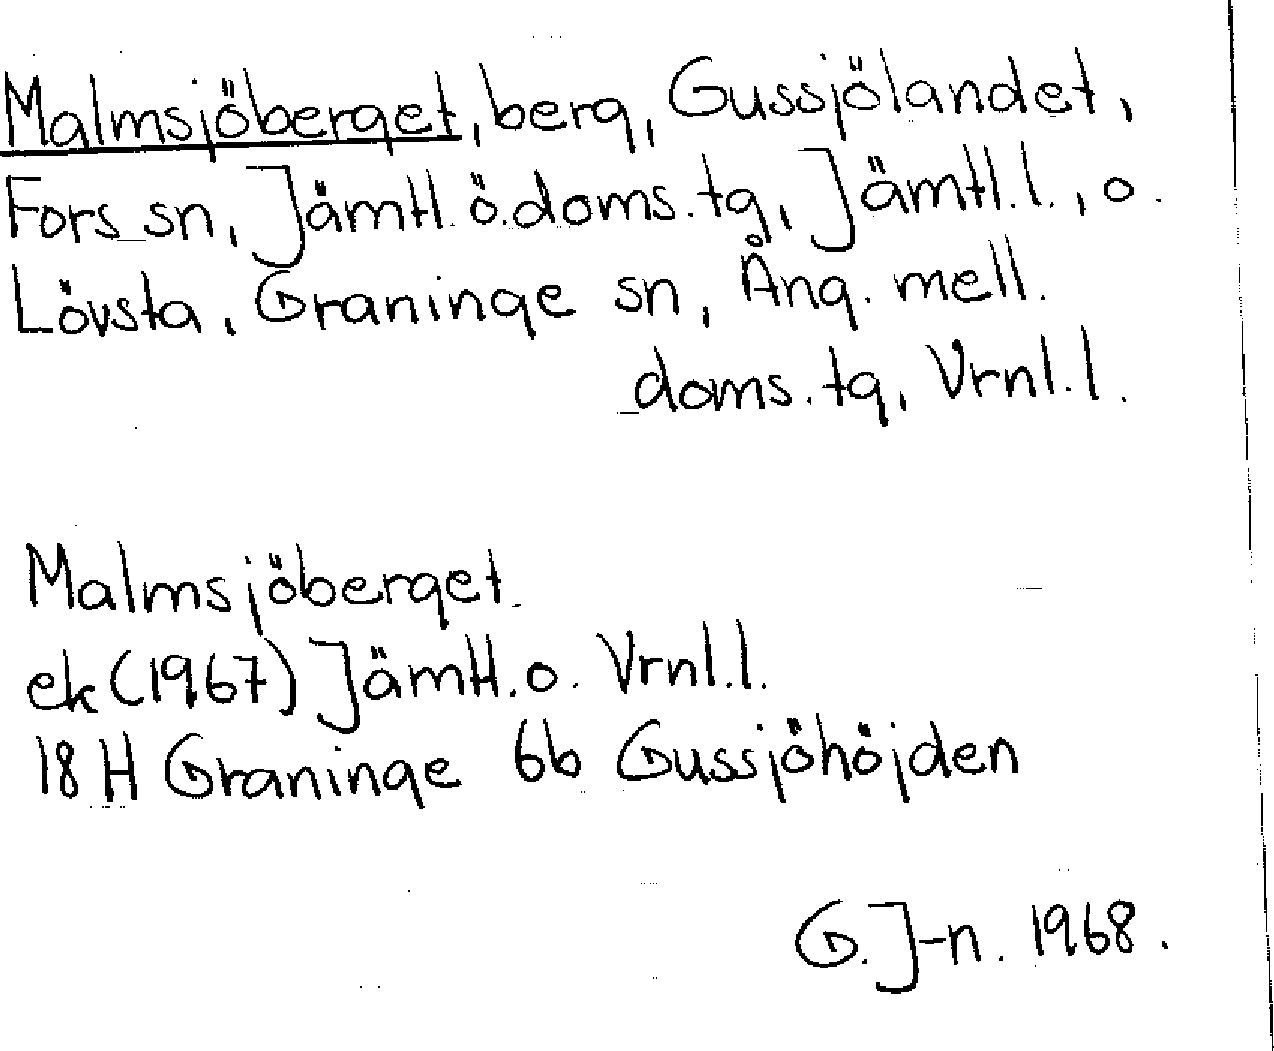 Malmsjöberget, berg, Gussjölandet,
Fors sn, Jämtl. ö. doms. tg, Jämtl. l., o.
Lövsta, Graninge sn, Ång. mell.
doms. tg, Vrnl. l.
Malmsjöberget
ek (1967) Jämtl. o. Vrnl. l.
18 H Graninge 6b Gussjöhöjden
G. J-n. 1968.